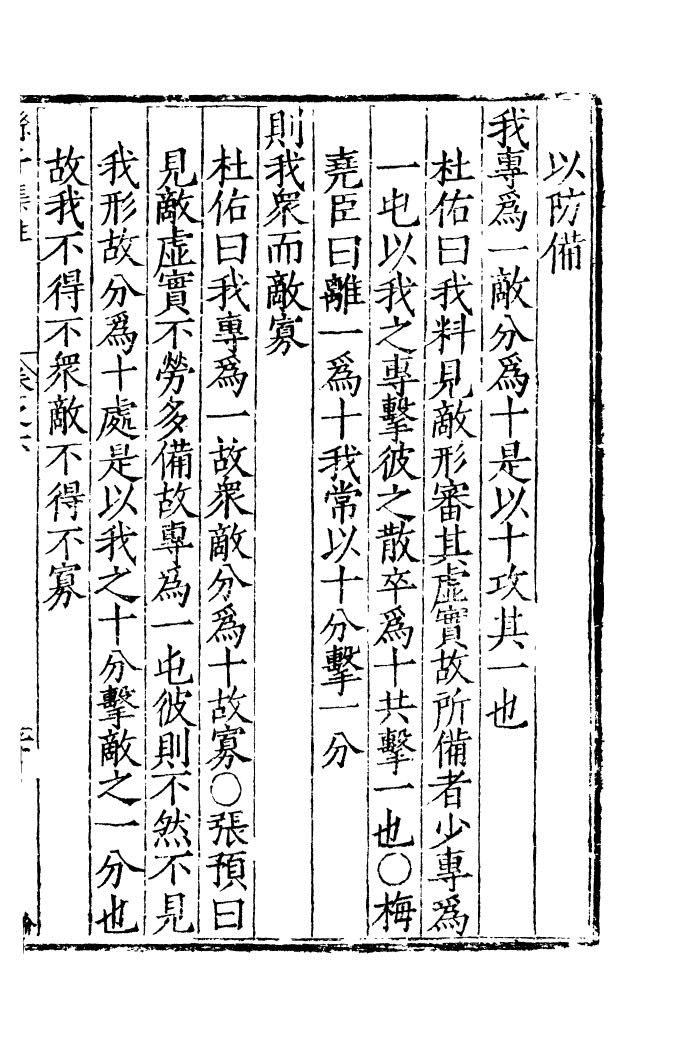 以防備
我專爲一敵分爲十是以十攻其一也
杜佑曰我料見敵形審其虛實故所備者少專爲
一屯以我之專擊彼之散卒爲十共擊一也○梅
堯臣曰離一爲十我常以十分擊一分
則我衆而敵寡
杜佑曰我專爲一故衆敵分爲十故寡○張預曰
見敵虛實不勞多備故專爲一屯彼則不然不見
我形故分爲十處是以我之十分擊敵之一分也
故我不得不衆敵不得不寡